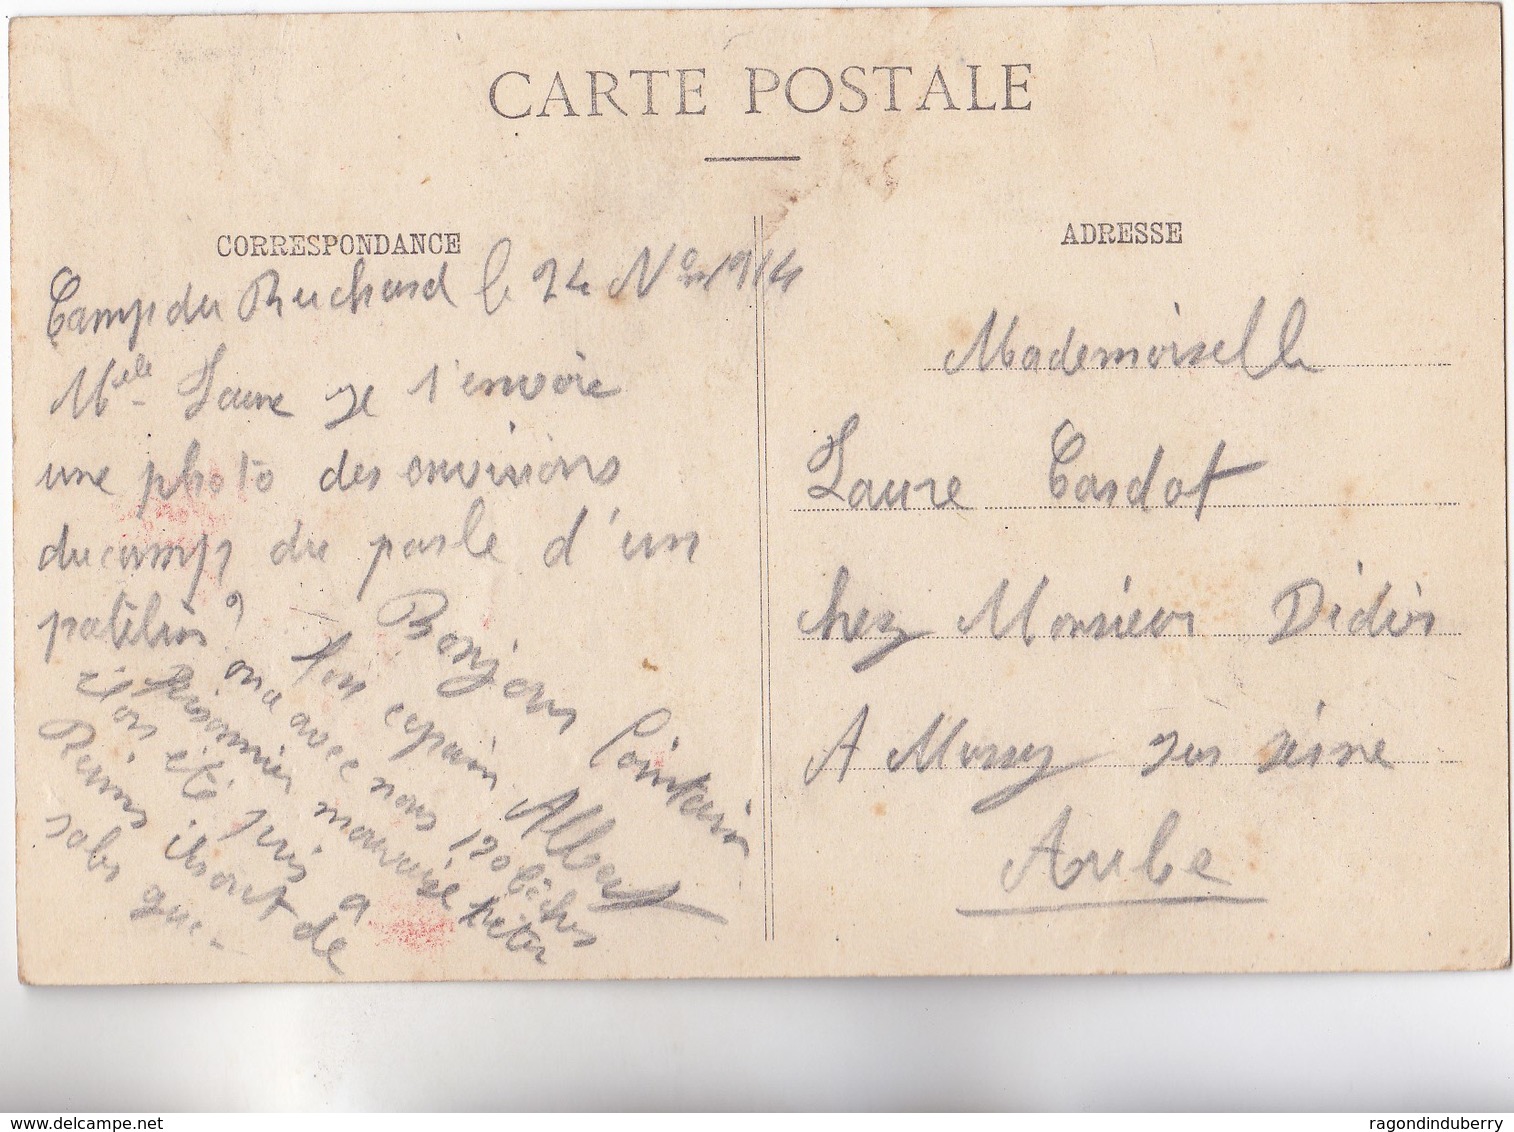 CARTE POSTALE
CORRESPONDANCE
Camp du Ruchard le 24 Nov 1914
Melle Laure je t'envoie
une photo des environs
du camp du parle d'un
patelin?
Bonjour Lointain
Ton copain Albert
on a avec nous 120 bôches
Prisonnier mauvaise
ils ont été pris a
Reims ils ont de
sales gue-
ADRESSE
Mademoiselle
Laure Cardot
chez Monsieur Didier
A Mussy sur seine
Aube
www.delcampe.net
ragondinduberry